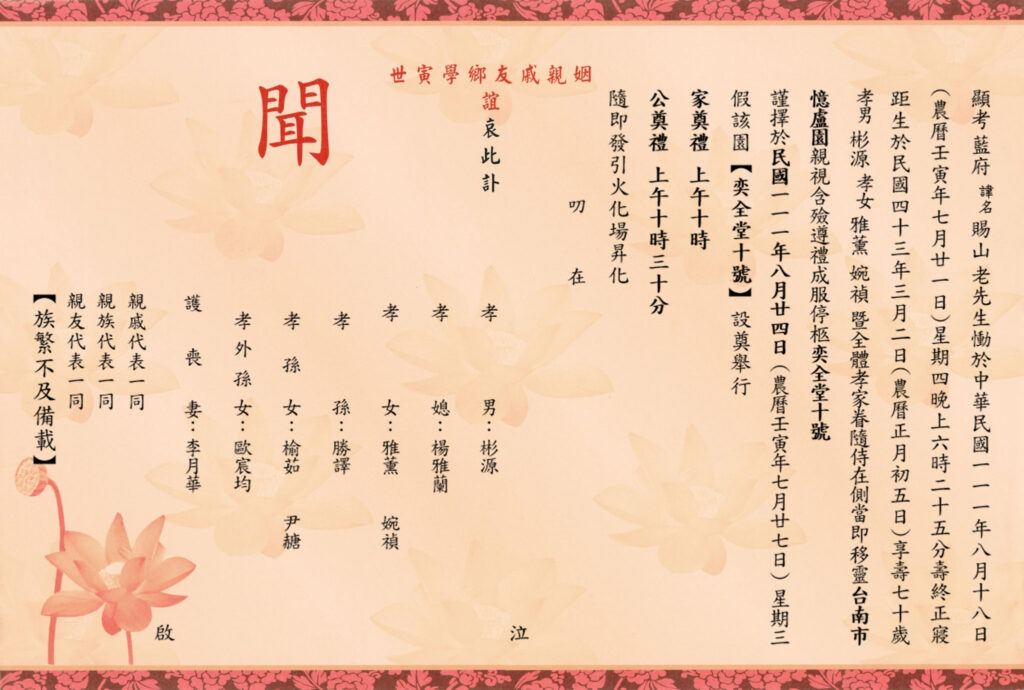 顯考 藍府 諱名 賜山 老先生慟於中華民國一一一年八月十八日
（農曆壬寅年七月廿一日）星期四晚上六時二十五分壽終正寢
距生於民國四十三年三月二日（農曆正月初五日）享壽七十歲
孝男 彬源 孝女 雅薰 婉禎 暨全體孝家眷隨侍在側當即移靈台南市
憶盧園親視含殮遵禮成服停柩奕全堂十號
謹擇於民國一一一年八月廿四日（農曆壬寅年七月廿七日）星期三
假該園【奕全堂十號】設奠舉行
家奠禮 上午十時
公奠禮 上午十時三十分
隨即發引火化場昇化
叨 在
姻親戚友鄉學寅世
誼哀此訃
聞
孝 男：彬源
孝 媳：楊雅蘭
孝 女：雅薰 婉禎
孝 孫：勝譯
孝孫 女：榆茹 尹䊝
孝外孫 女：歐宸均
護喪 妻：李月華
泣
啟
親戚代表一同
親族代表一同
親友代表一同
【族繁不及備載】